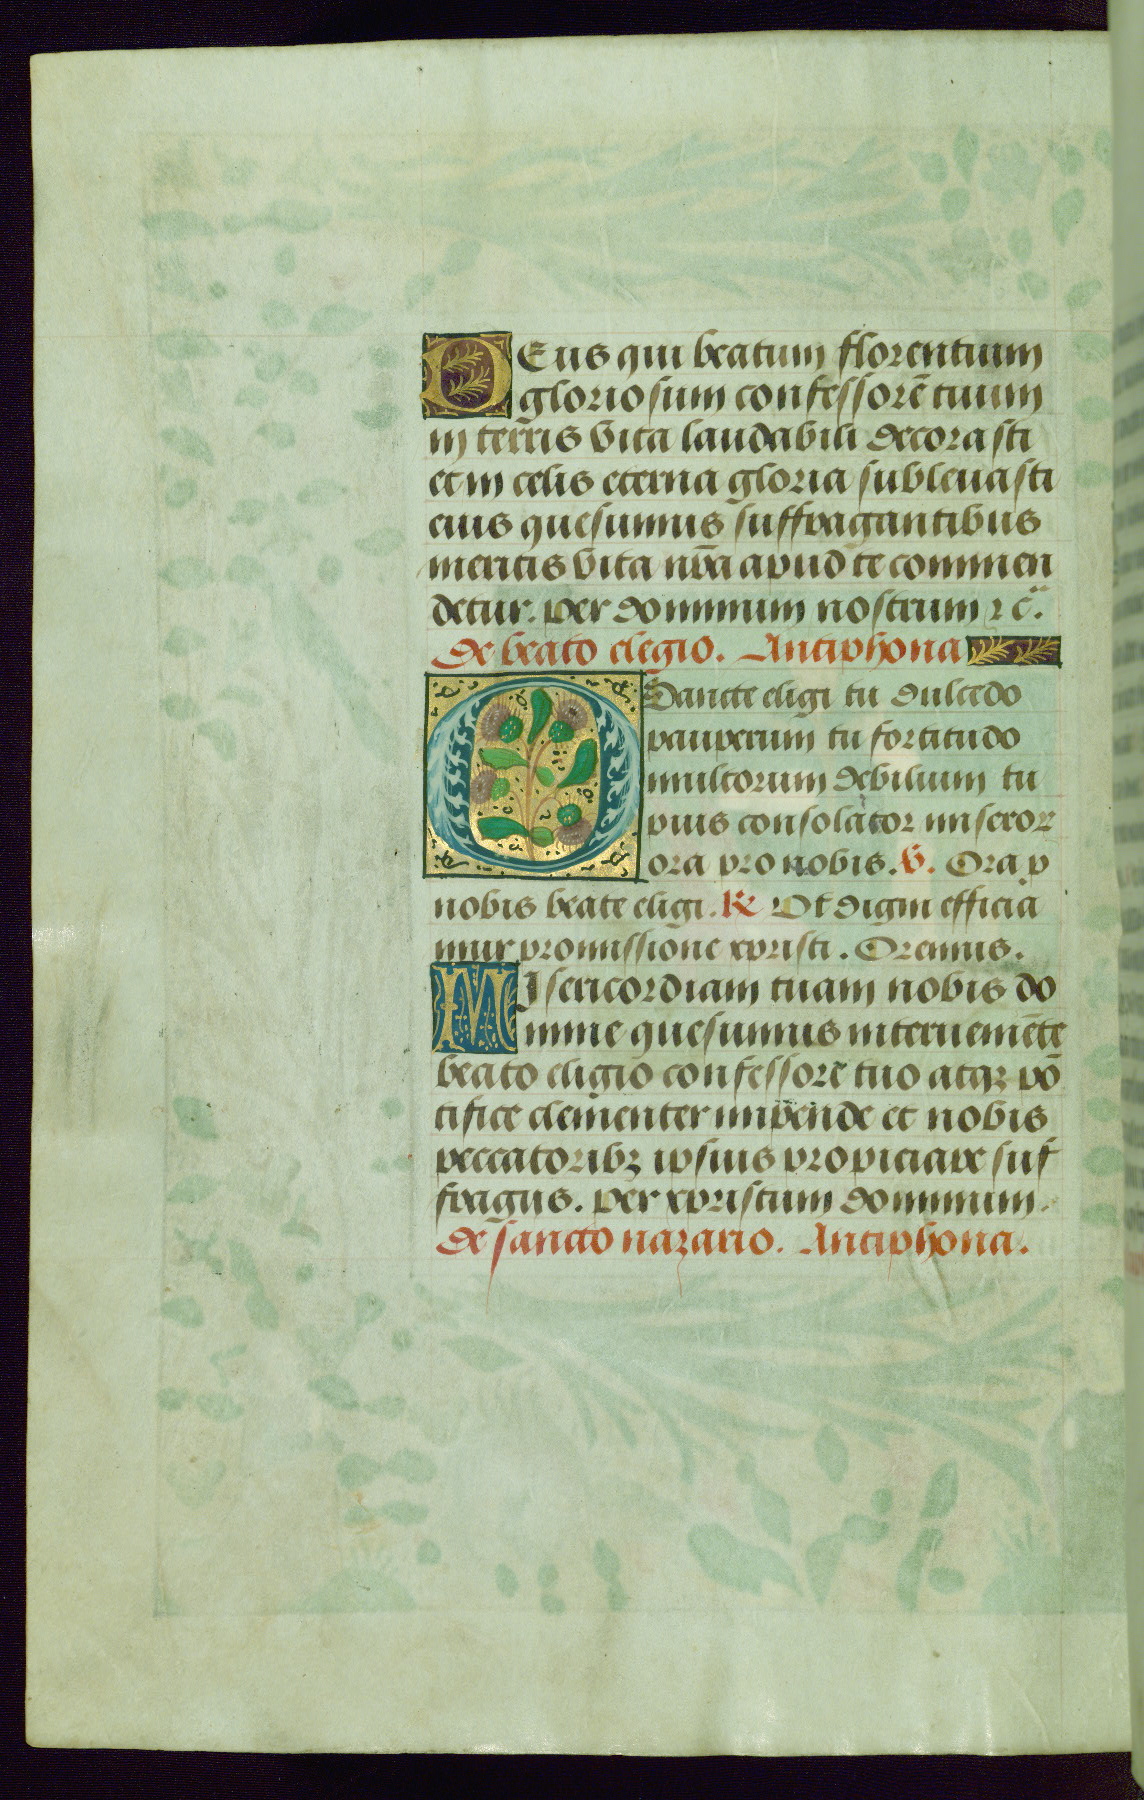 Deus qui beatum florentium
gloriosum confessorē tuum
in terris vita laudabili decorasti
et in celis eterna gloria subleuasti
eius quesumus suffragantibus
meritis vita nr̄a apud te commen
detur. per dominum nostrum ⁊ c̄.
de beato elegio. Antiphona
O Sancte eligi tu dulcedo
pauperum tu fortitudo
multorum debilium tu
pius consolator miseror
ora pro nobis. V. Ora p
nobis beate eligi. R Ut digni efficia
mur promissione xpristi. Oremus.
Misericordiam tuam nobis do
mine quesumus interueniēte
beato eligio confessore tuo atqꝫ pō
tifice clementer impende et nobis
peccatoribꝫ ipsius propiciare suf
fragiis. per xpristum dominum.
de sancto nazario. Antiphona.